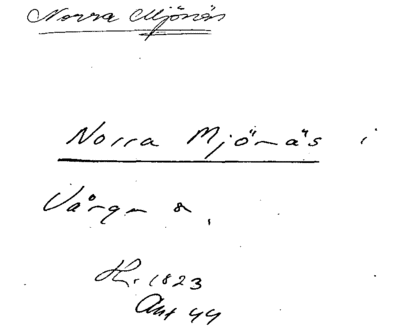 Norra Mjönäs
Norra Mjönäs i
Vårga
1823
Akt 44